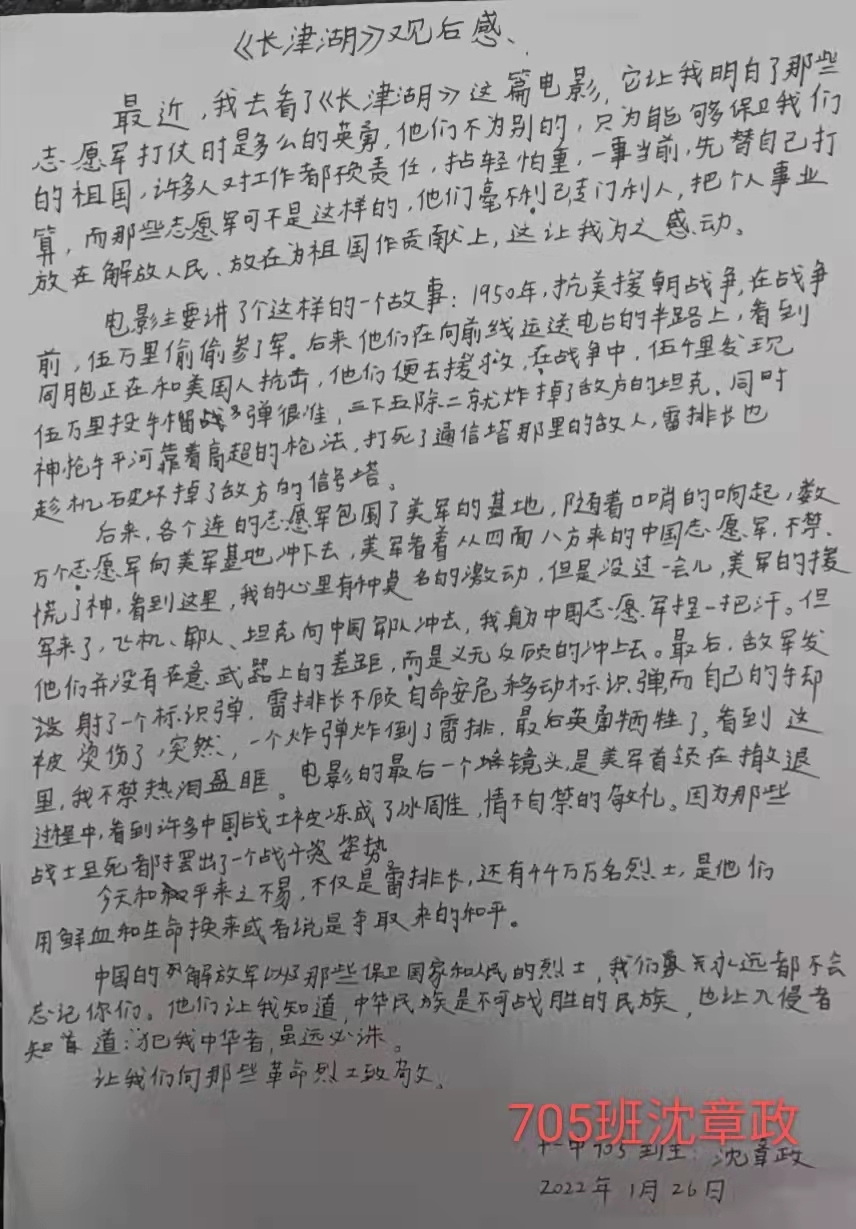 《长津湖》观后感、
最近，我去看了《长津湖》这篇电影，它让我明白了那些
志愿军打仗时是多么的英勇，他们不为别的，只为能够保卫我们
的祖国，许多人对工作者都不负责任，拈轻怕重，一事当前，先替自己打
算，而那些志愿军可不是这样的，他们毫不利己专门利人，把个人事业
放在解放人民、放在为祖国作贡献上，这让我为之感动。
电影主要讲了个这样的一个故事：1950年，抗美援朝战争，在战争
前，伍万里偷偷参了军。后来他们在向前线运送电台的半路上，看到
同胞正在和美国人抗击，他们便去援救，在战争中，伍千里发现
伍万里投手榴弹很准，三下五除二就炸掉了敌方的坦克，同时
神枪手平河靠着高超的枪法，打死了通信塔那里的敌人，雷排长也
趁机破坏掉了敌方的信号塔。
后来，各个连的志愿军包围了美军的基地，随着口哨的响起，数
万个志愿军向美军基地冲下去，美军看着从四面八方来的中国志愿军，不禁
慌了神，看到这里，我的心里有种莫名的激动，但是没过一会儿，美军的援
军来了，飞机、军人、坦克向中国军队冲去，我真为中国志愿军捏一把汗。但
他们并没有在意武器上的差距，而是义无反顾的冲上去。最后，敌军发
射了一个标识弹，雷排长不顾自命安危移动标识弹，而自己的手却
被烫伤了，突然，一个炸弹炸倒了雷排，最后英勇牺牲了，看到这
里，我不禁热泪盈眶。电影的最后一个镜头，是美军首领在撤退
过程中，看到许多中国战士被冻成了冰雕，情不自禁的敬礼。因为那些
战士至死都摆出了一个战斗姿势
今天和平来之不易，不仅是雷排长，还有44万万名烈士，是他们
用鲜血和生命换来或者说是争取来的和平。
中国的解放军以及那些保卫国家和人民的烈士，我们永远都不会
忘记你们。他们让我知道，中华民族是不可战胜的民族，也让入侵者
知道：犯我中华者，虽远必诛。
让我们向那些革命烈士致敬。
705班沈章政
十一中705 沈章政
2022年1月26日